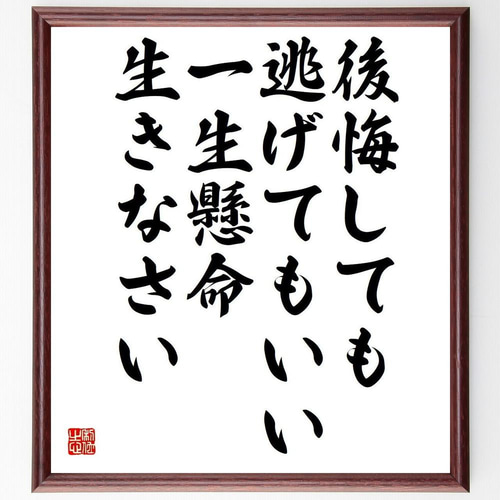 後悔しても
逃げてもいい
一生懸命
生きなさい